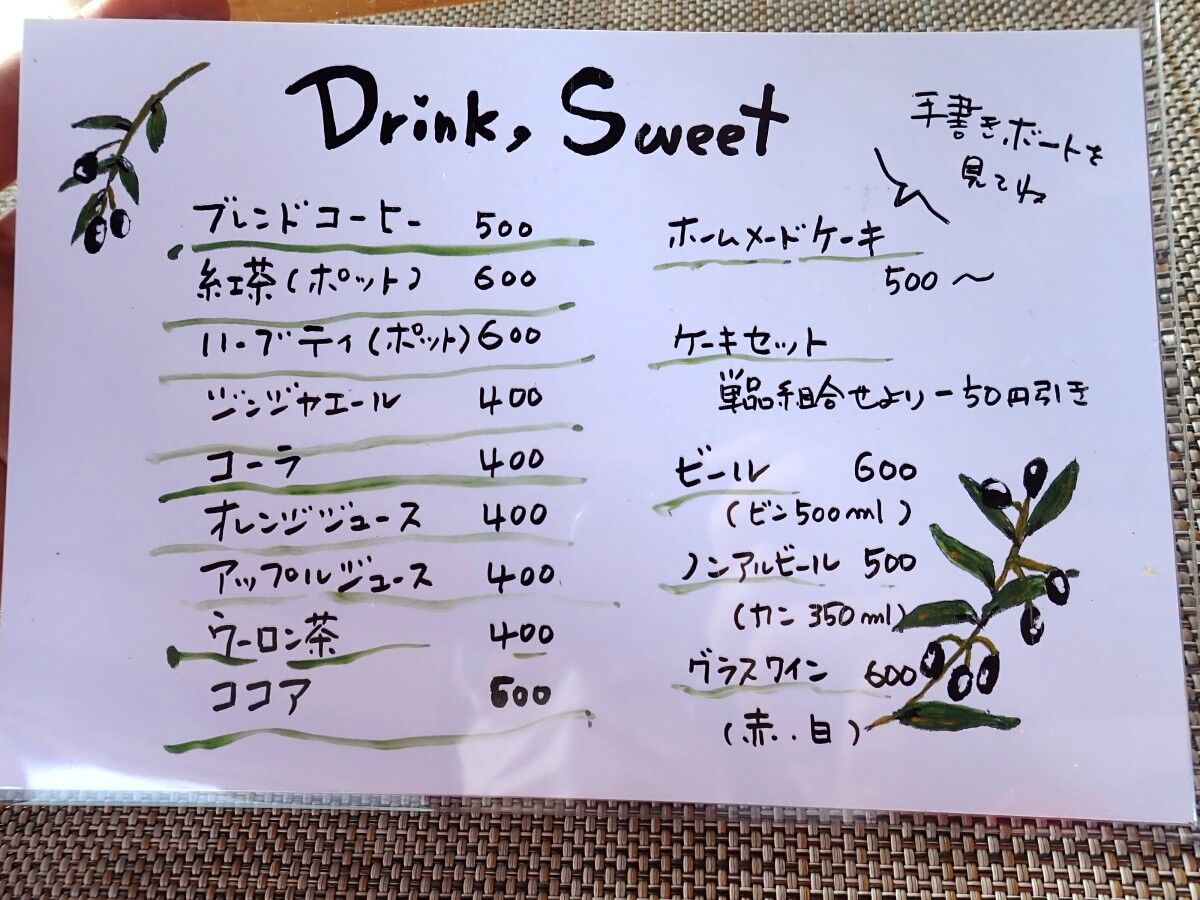 Drink, Sweet
手書きボートを
見てね
ブレンドコーヒー 500
紅茶(ポット) 600
ハーブティ(ポット) 600
ジンジャエール 400
コーラ 400
オレンジジュース 400
アップルジュース 400
ウーロン茶 400
ココア
ホームメードケーキ
500〜
ケーキセット
単品組合せより-50円引き
ビール 600
(ビン500ml)
ノンアルビール 500
(カン350ml)
グラスワイン 600
(赤・白)